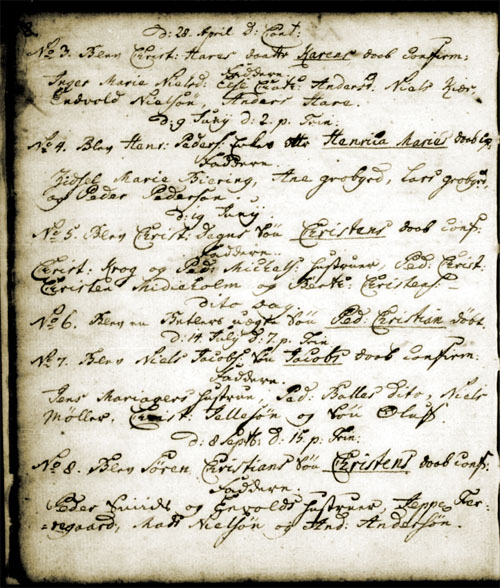 D: 28. April D: Cant:
No 3. Blev Christ: Hares daatr Karens daab Confirm:
Faddern
Inger Marie Nielsd: Else Christ: Anders: Niels Kiær
Endvold Nielsøn, Anders Hare.
D: 9 Juny D: 2. p. Trin:
No 4. Blev Henr: Peders: dttr Henrica Maries daab
Faddern.
Zidsel Marie Biering, Ane grobyrd, Lars grobyrd,
og Peder Pedersøn.
D: 19 Juny.
No 5. Blev Christ: Degns Søn Christens daab Conf:
Faddern.
Christ: Krog og Ped: Michels: hustruer, Ped: Christ:
Christen Midieholm og Berte Christens:
Dito Dag.
No 6. Blev en Betlers uægte Søn Ped: Christian døbt.
D: 14 July D: 7. p. Trin
No 7. Blev Niels Jacobs: Søn Jacobs daab Confirm:
Faddern.
Jens Mariagers hustrue, Ped: Balles Dito, Niels
Møller, Christ: Sellesøn og Søn Oluf
D: 8 Septb: D: 15. p: Trin:
No 8. Blev Søren Christians Søn Christens daab Conf:
Faddern.
Peder og Envolds hustruer, Jeppe
Mads Nielsøn og And: Andersøn.